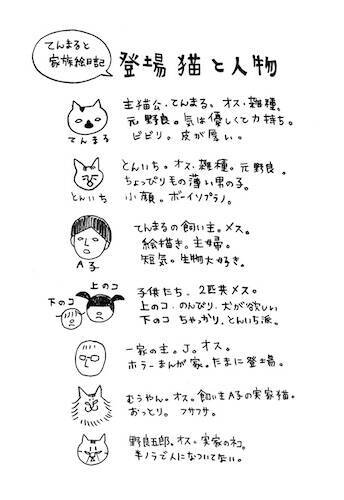 てんまると
家族絵日記
登場猫と人物
主猫公・てんまる。オス・雑種。
元野良。気は優しくて力持ち。
ビビリ。皮が厚い。
てんまる
とんいち。オス・雑種。元野良。
ちょっぴり毛の薄い男の子。
小顔。ボーイソプラノ。
とんいち
てんまるの飼い主。メス。
絵描き。主婦。
短気。生物大好き。
A子
上のコ
下のコ
子供たち。2匹共メス。
上のコ・のんびり。犬が欲しい
下のコ ちゃっかり。とんいち派。
一家の主。J。オス。
ホラーまんが家。たまに登場。
むうやん。オス。飼い主A子の実家猫。
おっとり。フサフサ。
野良五郎。オス。実家のネコ。
半ノラで人になついてない。